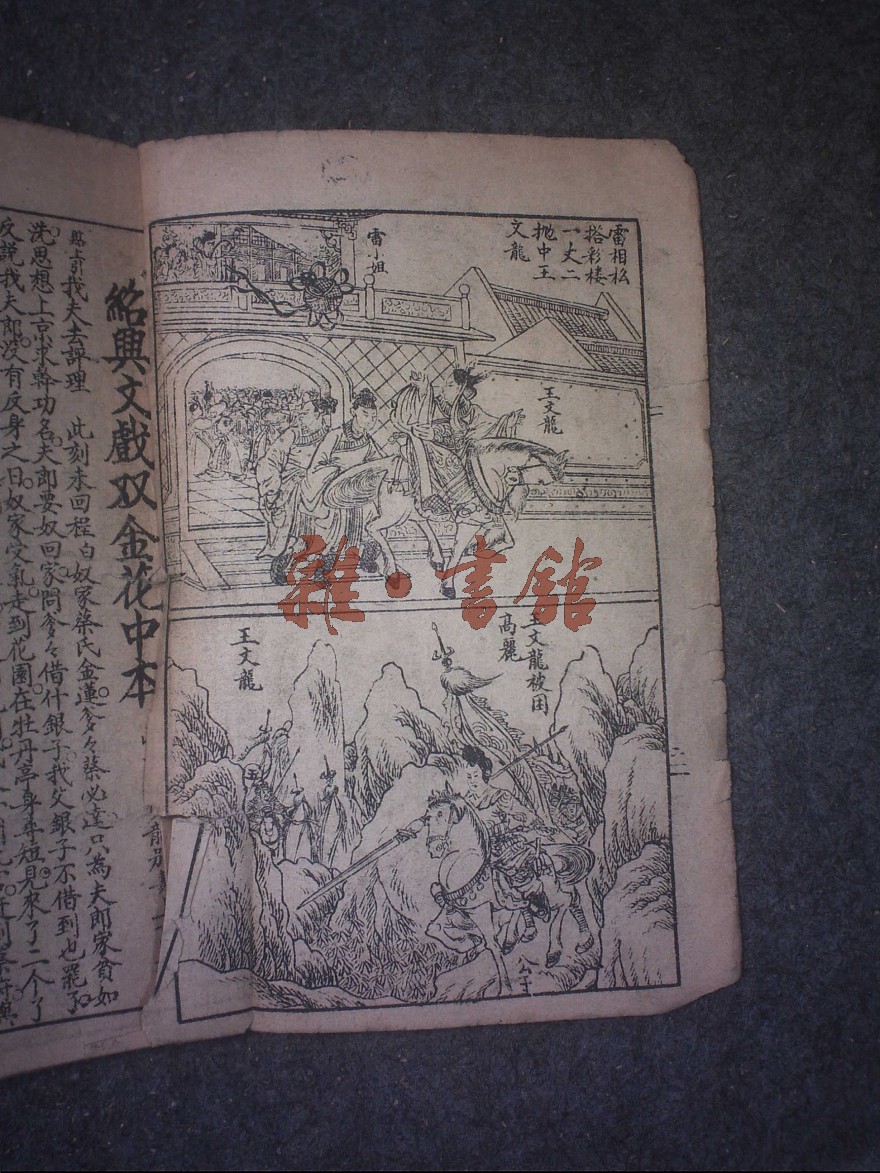 雷相松
搭彩楼
一丈二
抛中王
文龍
雷小姐
王文龍
王文龍被困
高麗
王文龍
公主
雜·書館
紹興文戲双金花中本
我夫去評理 此刻未回程白奴家蔡氏金蓮爹々蔡必達只為夫郎家貧如
洗思想上京求幹功名夫郎要奴回家問爹々借什銀子我父銀子不借到也罷了
反說我夫郎沒有反身之日奴家受氣走到花園在牡丹亭身尋短見來了二个了